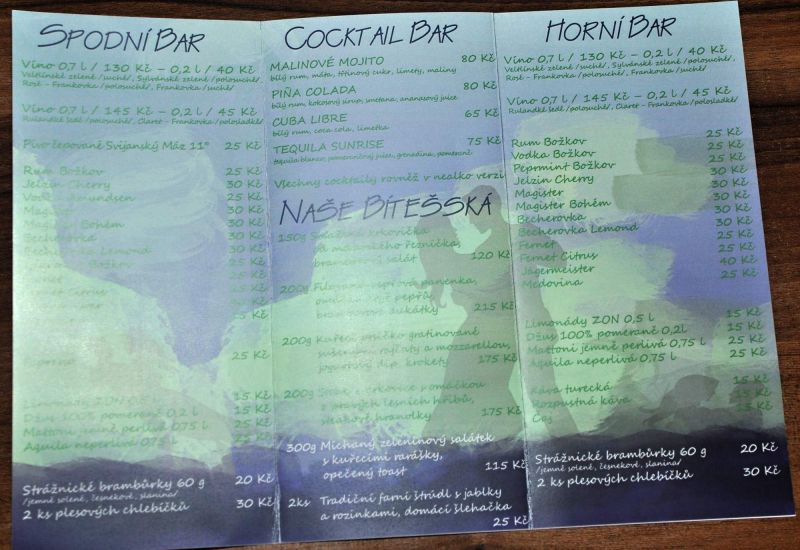 SPODNÍ BAR
Víno 0,7 l / 130 Kč – 0,2 l / 40 Kč
Veltlínské zelené /suché/, Sylvánské zelené /polosuché/,
Rosé - Frankovka /polosuché/, Frankovka /suché/
Víno 0,7 l / 145 Kč – 0,2 l / 45 Kč
Rulandské šedé /polosuché/, Claret - Frankovka /polosladké/
Pivo čepované Svijanský Máz 11° 25 Kč
Rum Božkov 25 Kč
Jelzin Cherry 30 Kč
Vodka Amundsen 25 Kč
30 Kč
Bohém 30 Kč
Becherovka 30 Kč
Lemond 30 Kč
Božkov 25 Kč
25 Kč
Citrus 25 Kč
25 Kč
25 Kč
Limonády ZON 0,5 l 15 Kč
Džus 100% pomeranč 0,2 l 15 Kč
Mattoni jemně perlivá 0,75 l 25 Kč
Aquila neperlivá 0,75 l 25 Kč
Strážnické brambůrky 60 g 20 Kč
/jemně solené, česnekové, slanina/
2 ks plesových chlebíčků 30 Kč
COCKTAIL BAR
MALINOVÉ MOJITO 80 Kč
bílý rum, máta, třtinový cukr, limety, maliny
PIŇA COLADA 80 Kč
bílý rum, kokosový sirup, smetana, ananasový juice
CUBA LIBRE 65 Kč
bílý rum, coca cola, limetka
TEQUILA SUNRISE 75 Kč
tequila blanco, pomerančový juice, grenadina, pomeranč
Všechny cocktaily rovněž v nealko verzi
NAŠE BÍTEŠSKÁ
150g krkovička
řezníčka,
bramborový salát 120 Kč
200g panenka,
pepři,
dukátky 215 Kč
200g Kuřecí prsíčko gratinované
sušenými rajčaty a mozzarellou,
jogurtový dip, krokety 175 Kč
200g Steak z krkovice s omáčkou
z pravých lesních hřibů,
steakové hranolky 175 Kč
300g Míchaný zeleninový salátek
s kuřecími rarášky,
opečený toast 115 Kč
2ks Tradiční farní štrúdl s jablky
a rozinkami, domácí šlehačka
25 Kč
HORNÍ BAR
Víno 0,7 l / 130 Kč – 0,2 l / 40 Kč
Veltlínské zelené /suché/, Sylvánské zelené /polosuché/,
Rosé - Frankovka /polosuché/, Frankovka /suché/
Víno 0,7 l / 145 Kč – 0,2 l / 45 Kč
Rulandské šedé /polosuché/, Claret - Frankovka /polosladké/
Rum Božkov 25 Kč
Vodka Božkov 25 Kč
Peprmint Božkov 25 Kč
Jelzin Cherry 30 Kč
Magister 30 Kč
Magister Bohém 30 Kč
Becherovka 30 Kč
Becherovka Lemond 30 Kč
Fernet 25 Kč
Fernet Citrus 25 Kč
Jägermeister 40 Kč
Medovina 25 Kč
Limonády ZON 0,5 l 15 Kč
Džus 100% pomeranč 0,2l 15 Kč
Mattoni jemně perlivá 0,75 l 25 Kč
Aquila neperlivá 0,75 l 25 Kč
Káva turecká 15 Kč
Rozpustná káva 15 Kč
Čaj 15 Kč
Strážnické brambůrky 60 g 20 Kč
/jemně solené, česnekové, slanina/
2 ks plesových chlebíčků 30 Kč